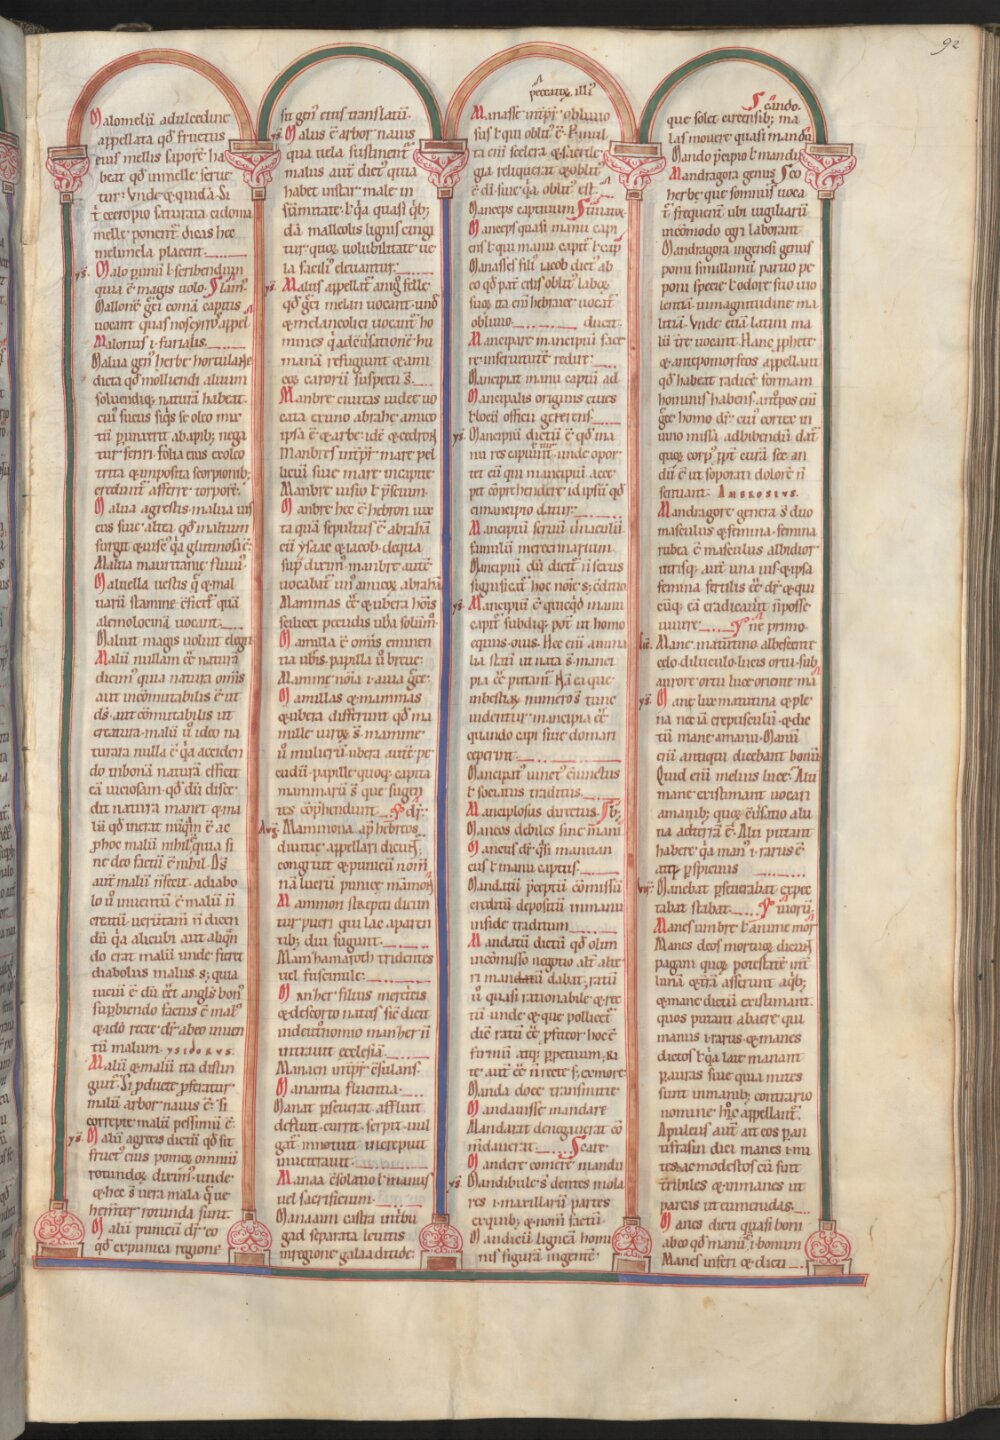 92
Malomelū adulcedine
appellata qđ fructus
eius mellis saporē ha
beat qđ inmelle serue
tur. Vnde ⁊ quidā. Si
melle ponent dicas hec
melimela placent.
ys. Malo p̄mū ł scribendum
quia ē magis uolo.
Mallones gͥci comā capitis
Malonus .i. furialis.
Malua gen͛ herbe hortularie
dicta qđ molliendi aluum
soluendiq; naturā habeat.
cui͛ sucus siq̇s se oleo mix
tū punxerit abapib; nega
tur feriri. folia eius ex oleo
trita ⁊ imposita scorpionib;
credunt̄ afferre torporē.
Malua agrestis. malua uis
cus siue altea qđ inaltum
surgit ⁊ uisc͛ q̇a glutinosū ē.
Malua mauritanie fluui͛.
Maluella uestis q̄ ⁊ mal
uarū stamine cōficit͛ quā
alii molocinā uocant.
Malunt magis uolunt elegīt
Malū nullam eē naturā
dicim͛ quia natura om̄is
aut incōmutabilis ē ut
dš. aut cōmutabilis ut
creatura. malū ū ideo na
turara nulla ē q̇a acceden
do inbonā naturā efficit
eā uiciosam. qđ dū disce
dit natura manet ⁊ ma
lū qđ inerat nūq̄m ē.
ne deo factū ē nihil. Dš
aut malū n̄ fecit. adiabo
lo ū inuentū ē malū n̄
creatū. uerūtam̄ n̄ dicen
dū q̇a alicubi aut aliq̄n
do erat malū unde fieret
diabolus malus s; quia
uiciū ē dū eēt angl͛s bon͛
supbiendo factus ē mal͛
⁊ ido recte dr̄ abeo inuen
tū malum. ysidorvs.
Malū ⁊ malū ita distin
guit. Si pducte pferatur
malū arbor nauis ē. si
correpte malū pessimū ē.
ys. Malū agrestis dictū qđ sit
fruct͛ eius pomoꝝ omniū
rotundoꝝ dixim͛. unde
⁊ hec s̄ uera mala q̄ ue
hem̄ter rotunda sunt.
Malū punicū dr̄ eo
qđ expunica regione
sit gen͛ eius translatū.
Malus ē arbor nauis
qua uela sustinent͛
malus aut dict͛ quia
habet instar mali in
sūmitate. ł q̇a quasi q̇b;
dā malleolis ligneis cingi
tur quoꝝ uolubilitate ue
la facili͛ eleuantur.
ys. Malus appellat̄ aniḡ felle
qđ gͥci melan uocant. unđ
⁊ melancolici uocant͛ ho
mines q̇ adeūsationē hu
manā refugiunt ⁊ ami
coꝝ caroꝝ suspecti s̄.
Manbre ciuitas iudee uo
cata exuno abrahe amico
ipsa ē ⁊ arbe. idē ⁊ cebron
Manbres intp̄r mare pel
liciū siue mare in capite
Manbre uisio ł p̄spicuum.
Manbre hec ē hebron iux
ta quā sepultus ē abrahā
cū ysaac ⁊ iacob. de qua
sup̄ dixim͛. manbre autē
uocabat͛ un͛ amicoꝝ abrahā
Mammas eē ⁊ ubera hōis
scilicet pecudis uba solum̄.
Mamilla ē om̄is eminen
tia ub̄is. papilla ū breue.
Mamme nōia .i. auia gͥce.
Mamillas ⁊ mammas
⁊ ubera differunt qđ ma
mille uiroꝝ s̄. mamme
ū mulierū ubera autē pe
cudū. papille quoq; capita
mammarū s̄ que sugen
tes cōp̄hendunt.
Aug. Mammona ap̄ hebreos
diuitie appellari dicunt͛.
congruit ⁊ punicū nom̄
nā lucrū punice māmon
Mammon strepti dicun
tur pueri qui lac aparen
tib; diu sugunt.
Mamhamaroth tridentes
uel fuscinule.
Manher filius meretricis
⁊ descorto natus. sic dicit
indeut̄nomio manher n̄
intrauit ecclesiā.
Manaen intp̄r cōsulans.
Manantia fluentia.
Manat pseuerat. affluit
defluit. currit. serpit. uul
gat. innotuit. increpuit
inueterauit.
Manaa cōsolatio ł manus
uel sacrificium.
Manaaim castra intribu
gad separata leuitis
in regione galaaditide.
peccatoꝝ. illi͛
Manasse intp̄r obliuio
sus ł qui oblit͛ ē. p̄ mul
ta eni scelera ⁊ sacrile
gia reliquerat ⁊ oblit͛
ē dī. siue q̇a oblit͛ est.
Manceps captiuum
Manceps quasi manu capi
ens ł qui manu capit̄ ł capī
Manasses fili͛ iacob dict͛ ab
eo qđ pat̄ ei͛ sit oblit͛ laboꝝ
suoꝝ. ita eni hebraice uocat͛
obliuio. ducit.
Mancipare mancipiū face
re. inseruitutē redire.
Mancipat manu captū ađ.
Mancipalis originis ciues
ł locū officii gerens.
ys. Mancipiū dictū ē qđ ma
nu res capiunt͛. unde opor
tet eū qui mancipiū acce
pit cōprehendere id ipsū qđ
eimancipio datur.
Mancipiū seruū uinculū
famulū mercennarium.
Mancipiū dū dicit͛ n̄ seruus
significat͛ hoc nōie s; cōditio.
ys. Mancipiū ē quicq̇d manu
capit͛ subdiq; pot̄ ut homo
equus. ouis. Hec eni anima
lia statī ut nata s̄ manci
pia eē putant͛. Nā ea que
inbestiaꝝ numero s̄ tunc
uidentur mancipia eē
quando capi siue domari
ceperint.
Mancipat͛ uinct͛ cōuinctus
ł societius traditus.
Manciplosus directus.
Mancos debiles sine manu
Mancus dr̄ q̇si manu an
cus ł manu captus.
Mandatū p̄ceptū cōmissū
creditū depositū in manu
infide traditum.
Mandatū dictū qđ olim
incōmisso negotio alt̄ alte
ri manū dabat. ratū
ū quasi rationabile ⁊ rec
tū unde ⁊ que pollicet͛
firmū atq; p̄petuum. Ri
te aut eē n̄ recte s; ex more
Manda doce transmitte
Mandauisse mandare
Mandarat denegauerat cō
mdauerat.
Mandere comēre manda
ys. Mandibule s̄ dentes mola
res .i. maxillarū partes
exquib; ⁊ nom̄ factū.
Mandicū ligneā homi
nis figurā ingentē.
que solet circensib; ma
las mouere quasi mandā
Mando p̄cipio ł manduco
Mandragora genus
herbe que somniū uoca
t̄ frequent̄ ubi uigiliarū
incōmodo egri laborant
Mandragora ingens .i. genus
pomi simillimū paruo pe
poni specie ł odore suo uio
lentiā in magnitudine ma
litiā. Vnde etiā latini ma
lū t̄re uocant. Hanc pphete
⁊ antropomorfeos appellant
qđ habeat radicē formam
hominis habens. antropos eni
gͥce homo dr̄. cui͛ cortex in
uino missā adhibendū dat̄
quoꝝ corp͛ ppt̄ curā secan
dū ē ut soporati dolorē n̄
sentiant. Ambrosivs.
Mandragore genera s̄ duo
masculus ⁊ femina. femina
rubea ē masculus albidior
utrisq; aut una uis ⁊ ipsa
femina fertilis eē dr̄ ⁊ qui
cūq; eā eradicauit n̄ posse
uiuere. ne primo.
Mane matutino albescente
cedo diluculo. lucis ortu. sub
aurore ortu luce oriente. ma
ys. Mane luce matutina ⁊ ple
na nec iā crepusculū ⁊ dic
tū mane amanu. Manū
eni antiqui dicebant bonū.
Quid eni melius luce. Alii
mane existimant uocari
amanib; quoꝝ cōuersatio alu
na ad terrā ē. Alii putant
habere q̇a man͛ .i. rarus ē
atq; pspicuus.
Manebat pseuerabat expec
tabat stabat.
Manes umbre ł anime mor
Manes deos mortuoꝝ dicunt
pagani quoꝝ potestatē int̄
lunā ⁊ t̄rā asserunt. a q̇b;
⁊ mane dictū existimant.
quos putant abaere qui
manus .i. rarus. ⁊ manes
dictos ł q̇a late manant
p auras. siue quia mites
sunt inmanib; contrario
nomine hꝛ͛c appellant͛.
Apuleius aut̄ ait eos p an
tifrasin dici manes .i. mi
tes ac modestos cū sint
tribiles ⁊ inmanes ut
parcas ut eumenidas.
Manes dicti quasi boni
abeo qđ manū .i. bonum
Manes inferi ⁊ dicti